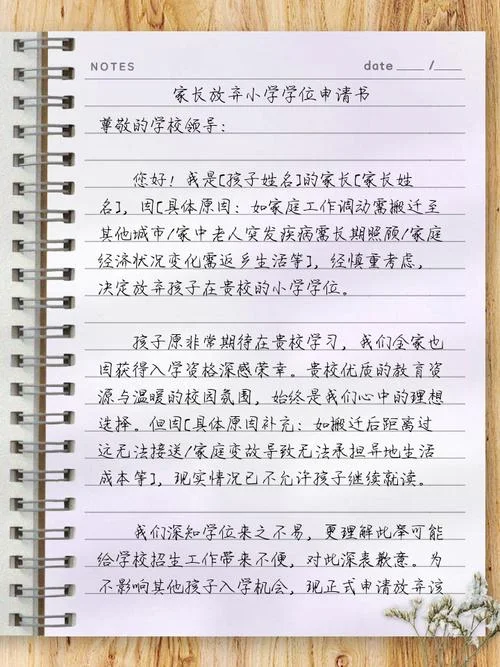 NOTES
date ____ /____
家长放弃小学学位申请书
尊敬的学校领导：
您好！我是[孩子姓名]的家长[家长姓
名]，因[具体原因：如家庭工作调动需搬迁至
其他城市/家中老人突发疾病需长期照顾/家庭
经济状况变化需返乡生活等]，经慎重考虑，
决定放弃孩子在贵校的小学学位。
孩子原非常期待在贵校学习，我们全家也
因获得入学资格深感荣幸。贵校优质的教育资
源与温暖的校园氛围，始终是我们心中的理想
选择。但因[具体原因补充：如搬迁后距离过
远无法接送/家庭变故导致无法承担异地生活
成本等]，现实情况已不允许孩子继续就读。
我们深知学位来之不易，更理解此举可能
给学校招生工作带来不便，对此深表歉意。为
不影响其他孩子入学机会，现正式申请放弃该